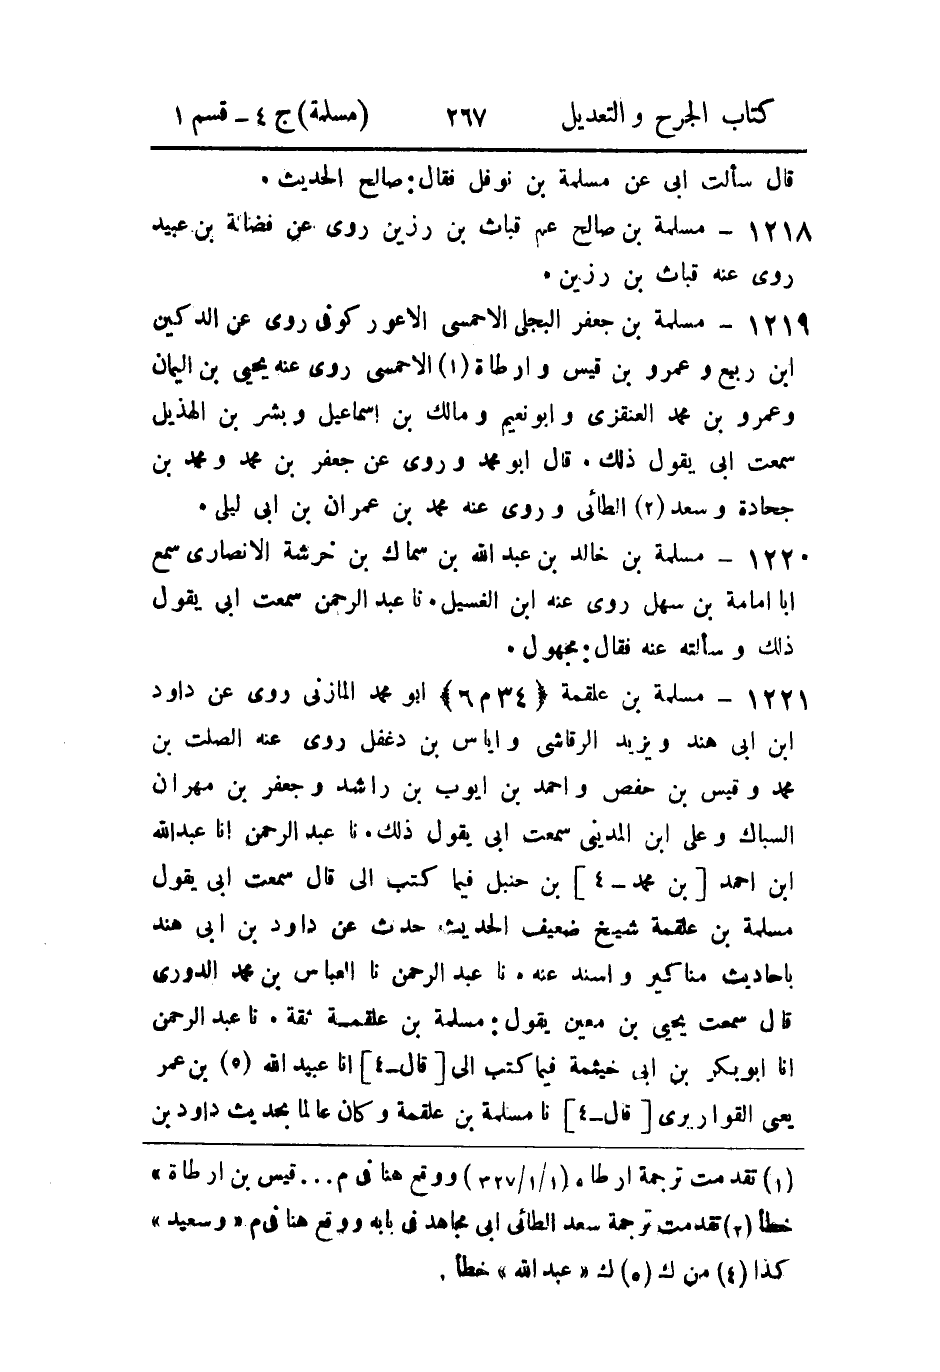 كتاب الجرح والتعديل ٢٦٧ (مسلمة) ج ٤ ـ قسم ١
قال سألت ابى عن مسلمة بن نوفل فقال: صالح الحديث.
١٢١٨ ـ مسلمة بن صالح عم قباث بن رزين روى عن فضالة بن عبيد
روى عنه قباث بن رزين.
١٢١٩ ـ مسلمة بن جعفر البجلى الاحمسى الاعور كوفى روى عن الدكين
ابن ربيع وعمرو بن قيس وارطاة (١) الاحمسى روى عنه يحيى بن اليمان
وعمرو بن محمد العنقزى وابو نعيم ومالك بن اسماعيل وبشر بن الهذيل
سمعت ابى يقول ذلك. قال ابو محمد وروى عن جعفر بن محمد ومحمد بن
جحادة وسعد (٢) الطائى وروى عنه محمد بن عمران بن ابى ليلى.
١٢٢٠ ـ مسلمة بن خالد بن عبد الله بن سماك بن خرشة الانصارى سمع
ابا امامة بن سهل روى عنه ابن الغسيل. نا عبد الرحمن سمعت ابى يقول
ذلك وسألته عنه فقال: مجهول.
١٢٢١ ـ مسلمة بن علقمة ﴿٣٤ م ٦﴾ ابو محمد المازنى روى عن داود
ابن ابى هند ويزيد الرقاشى واياس بن دغفل روى عنه الصلت بن
محمد وقيس بن حفص واحمد بن ايوب بن راشد وجعفر بن مهران
السباك وعلى ابن المدينى سمعت ابى يقول ذلك. نا عبد الرحمن انا عبد الله
ابن احمد [ بن محمد ـ ٤ ] بن حنبل فيما كتب الى قال سمعت ابى يقول
مسلمة بن علقمة شيخ ضعيف الحديث حدث عن داود بن ابى هند
باحاديث مناكير واسند عنه. نا عبد الرحمن نا العباس بن محمد الدورى
قال سمعت يحيى بن معين يقول: مسلمة بن علقمة ثقة. نا عبد الرحمن
انا ابو بكر بن ابى خيثمة فيما كتب الى [ قال ـ ٤ ] انا عبيد الله (٥) بن عمر
يعنى القواريرى [ قال ـ ٤ ] نا مسلمة بن علقمة وكان عالما بحديث داود بن
(١) تقدمت ترجمة ارطاه (٣٢٧/١/١) ووقع هنا فى م... قيس بن ارطاة »
خطأ (٢) تقدمت ترجمة سعد الطائى ابى مجاهد فى بابه ووقع هنا فى م « وسعيد »
كذا (٤) من ك (٥) ك « عبد الله » خطأ.